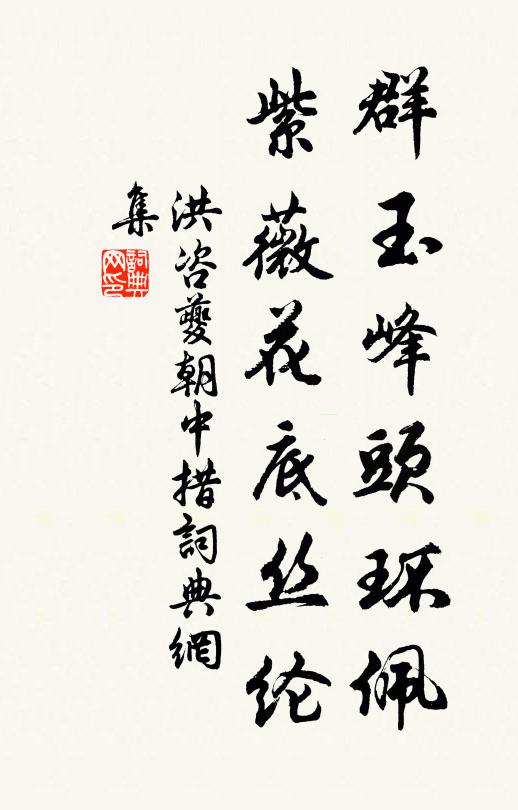 群玉峰頭环佩
紫薇花底丝纶
洪咨夔朝中措詞典網
集
詞典
网印